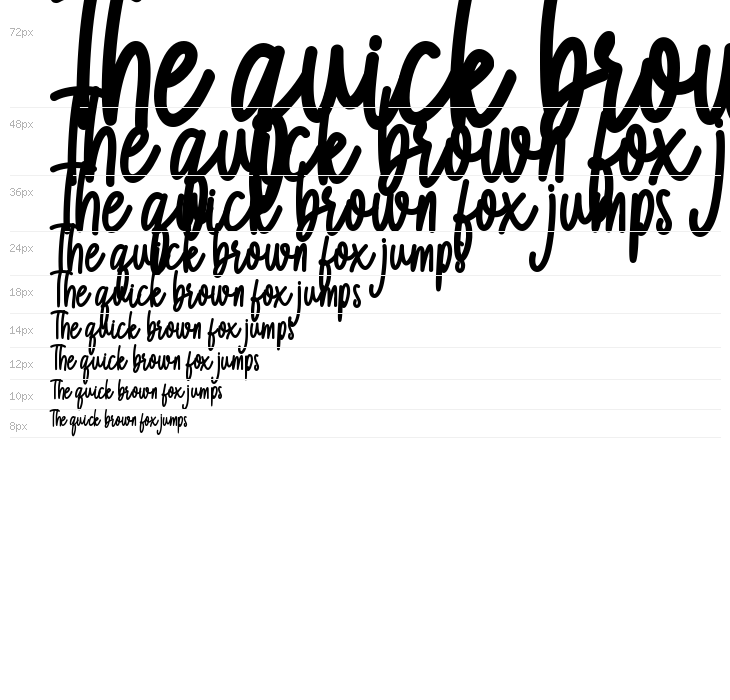 72px The quick brow
48px The quick brown fox j
36px The quick brown fox jumps
24px The quick brown fox jumps
18px The quick brown fox jumps
14px The quick brown fox jumps
12px The quick brown fox jumps
10px The quick brown fox jumps
8px The quick brown fox jumps